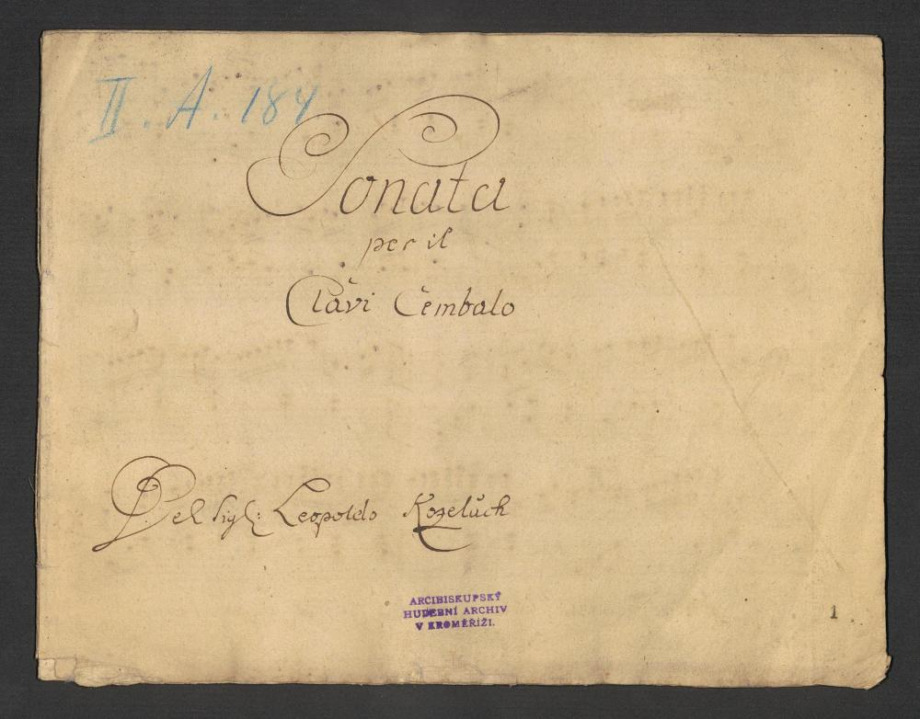 II. A. 184
Sonata
per il
Clavi Cembalo
Del Sigl: Leopoldo Kozeluch
ARCIBISKUPSKÝ
HUDEBNÍ ARCHIV
V KROMĚŘÍŽI.
1